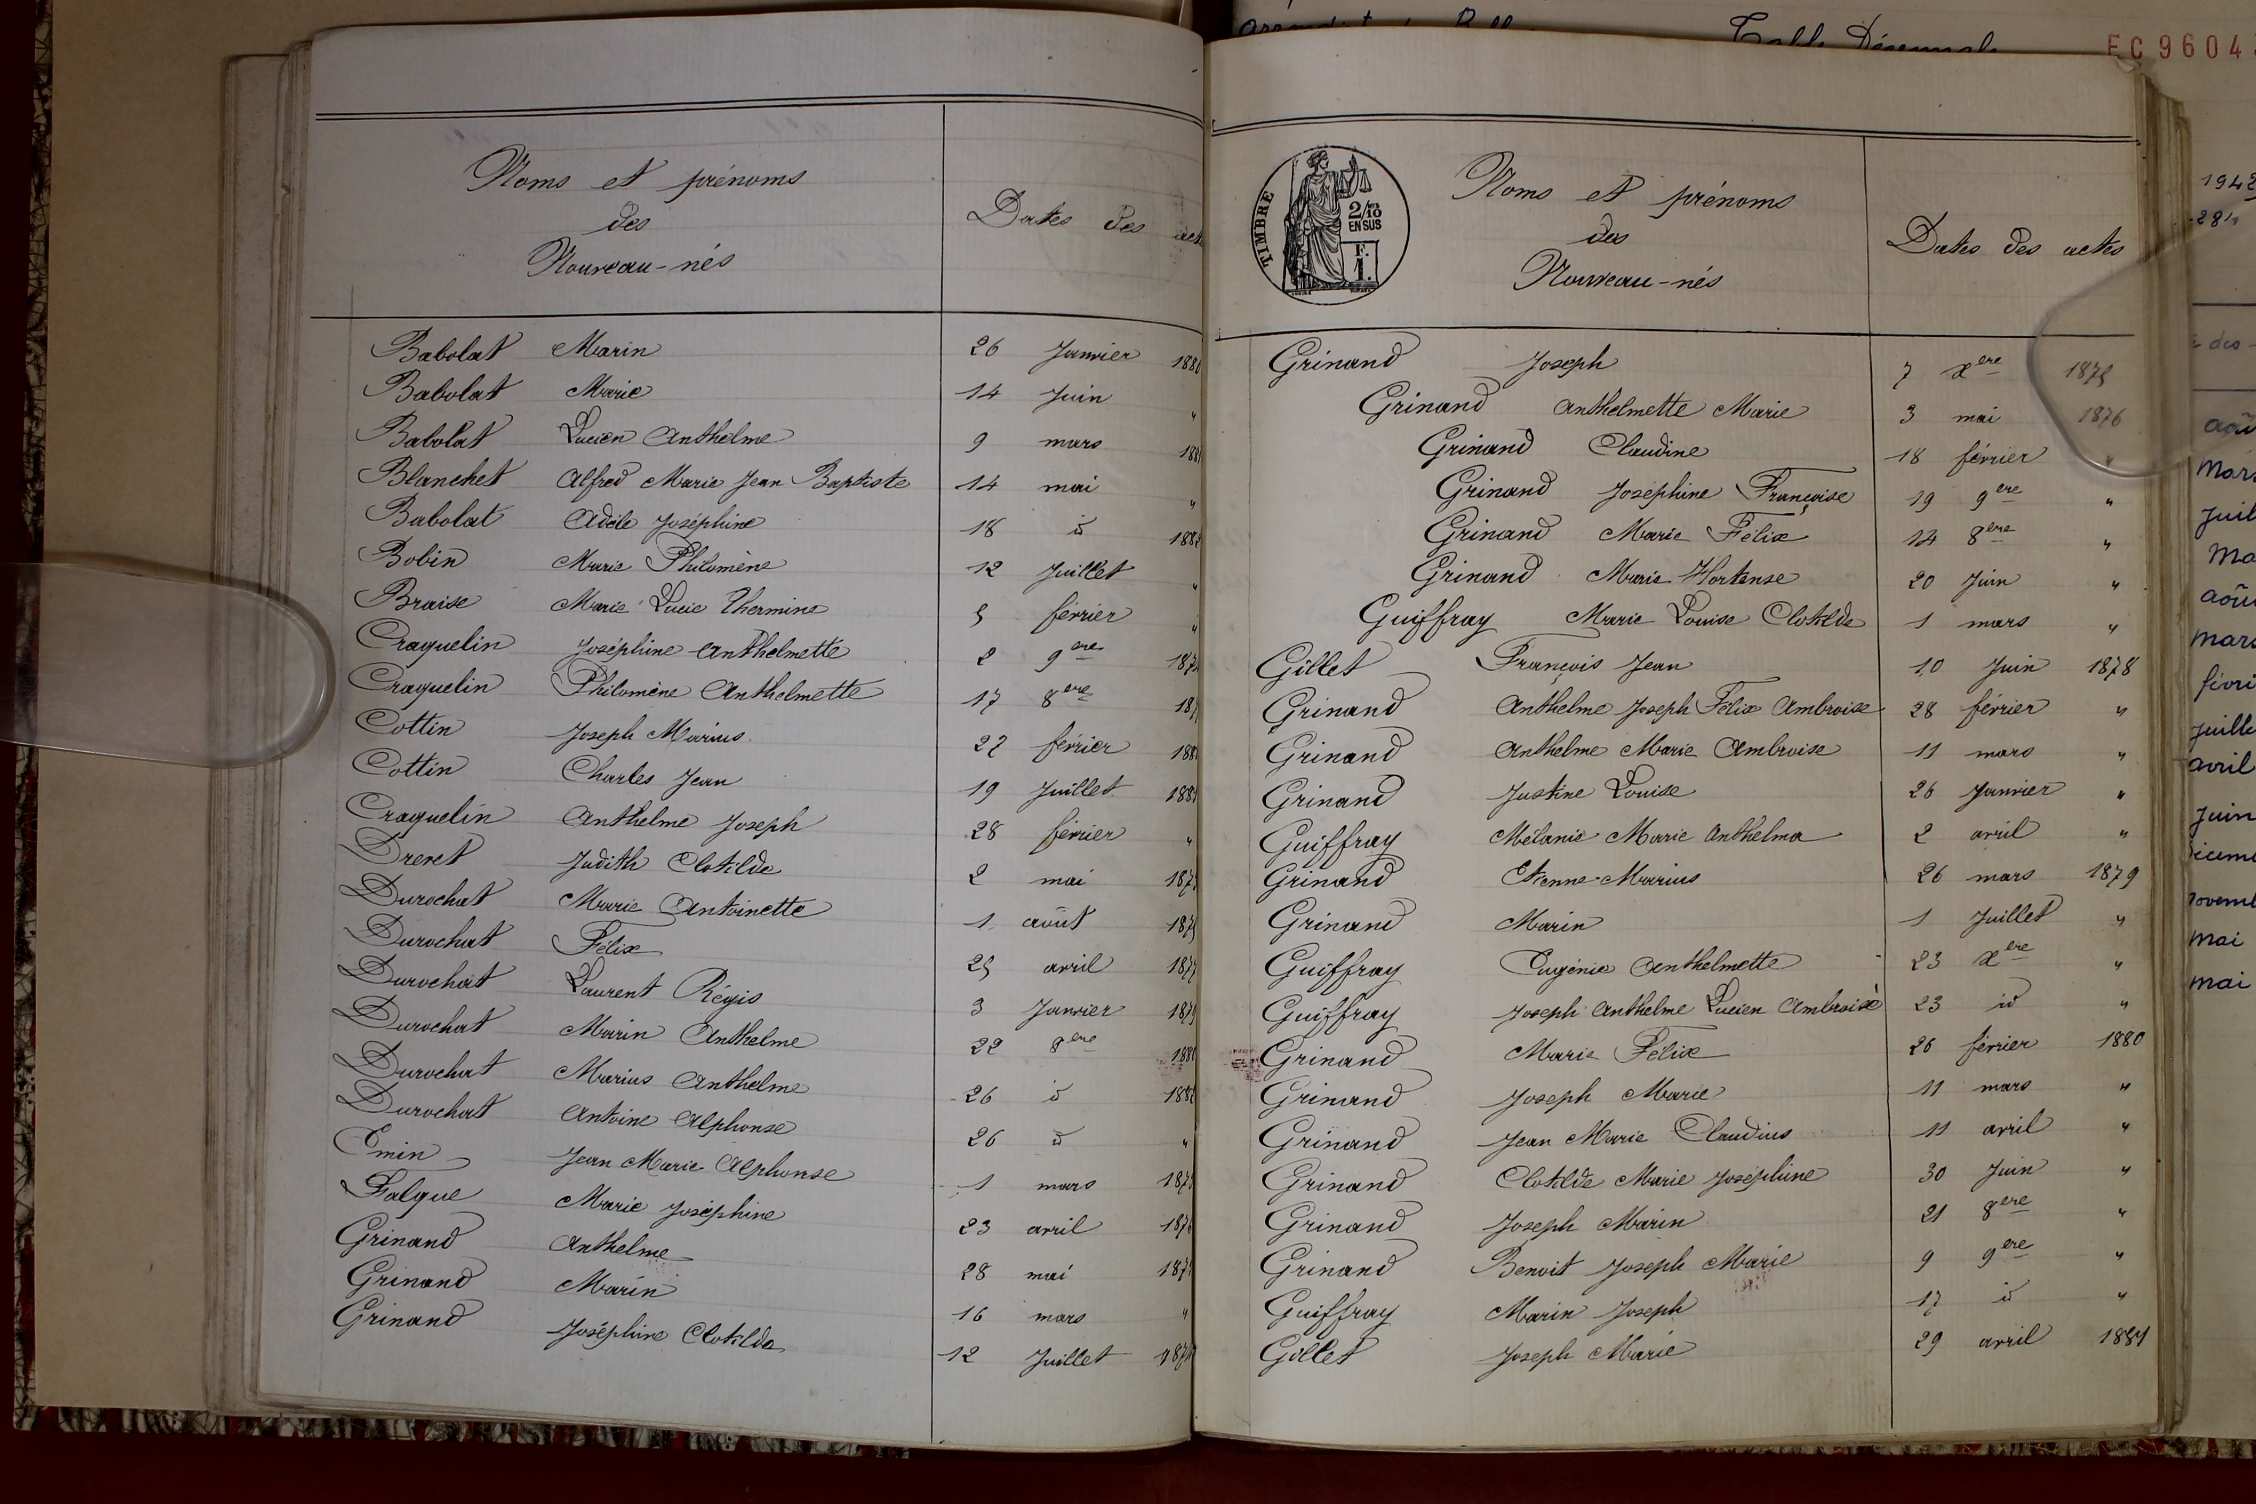 Noms et prénoms
des
Nouveau-nés
Dates des
Babolat Marin 26 Janvier
Babolat Marie 14 Juin "
Babolat Lucien Anthelme 9 mars
Blanchet Alfred Marie Jean Baptiste 14 mai "
Babolat Adèle Joséphine 18 id
Bobin Marie Philomène 12 Juillet "
Braise Marie Lucie Thermine 5 février "
Craquelin Joséphine Anthelmette 2 9ere
Craquelin Philomène Anthelmette 17 8ere
Cottin Joseph Marius 22 février
Cottin Charles Jean 19 Juillet
Craquelin Anthelme Joseph 28 février "
Drevet Judith Clotilde 2 mai
Durochat Marie Antoinette 1 août
Durochat Félix 25 avril
Durochat Laurent Régis 3 Janvier
Durochat Marin Anthelme 22 8ere
Durochat Marius Anthelme 26 id
Durochat Antoine Alphonse 26 id "
Emin Jean Marie Alphonse 1 mars
Falque Marie Joséphine 23 avril
Grinand Anthelme 28 mai
Grinand Marin 16 mars "
Grinand Joséphine Clotilde 12 Juillet
EC 9604
TIMBRE
2/10
EN SUS
F.
1.
Noms et prénoms
des
Nouveau-nés
Dates des actes
Grinand Joseph 7 xere 1875
Grinand Anthelmette Marie 3 mai 1876
Grinand Claudine 18 février "
Grinand Joséphine Françoise 19 9ere "
Grinand Marie Félix 14 8ere "
Grinand Marie Hortense 20 Juin "
Guiffray Marie Louise Clotilde 1 mars "
Gillet François Jean 10 Juin 1878
Grinand Anthelme Joseph Félix Ambroise 28 février "
Grinand Anthelme Marie Ambroise 11 mars "
Grinand Justine Louise 26 Janvier "
Guiffray Mélanie Marie Anthelma 2 avril "
Grinand Etienne-Marius 26 mars 1879
Grinand Marin 1 Juillet "
Guiffray Eugénie Anthelmette 23 xere "
Guiffray Joseph Anthelme Lucien Ambroise 23 id "
Grinand Marie Félix 26 février 1880
Grinand Joseph Marie 11 mars "
Grinand Jean Marie Claudius 11 avril "
Grinand Clotilde Marie Joséphine 30 Juin "
Grinand Joseph Marin 21 8ere "
Grinand Benoit Joseph Marie 9 9ere "
Guiffray Marin Joseph 17 id "
Gillet Joseph Marie 29 avril 1881
1942
mai
mai